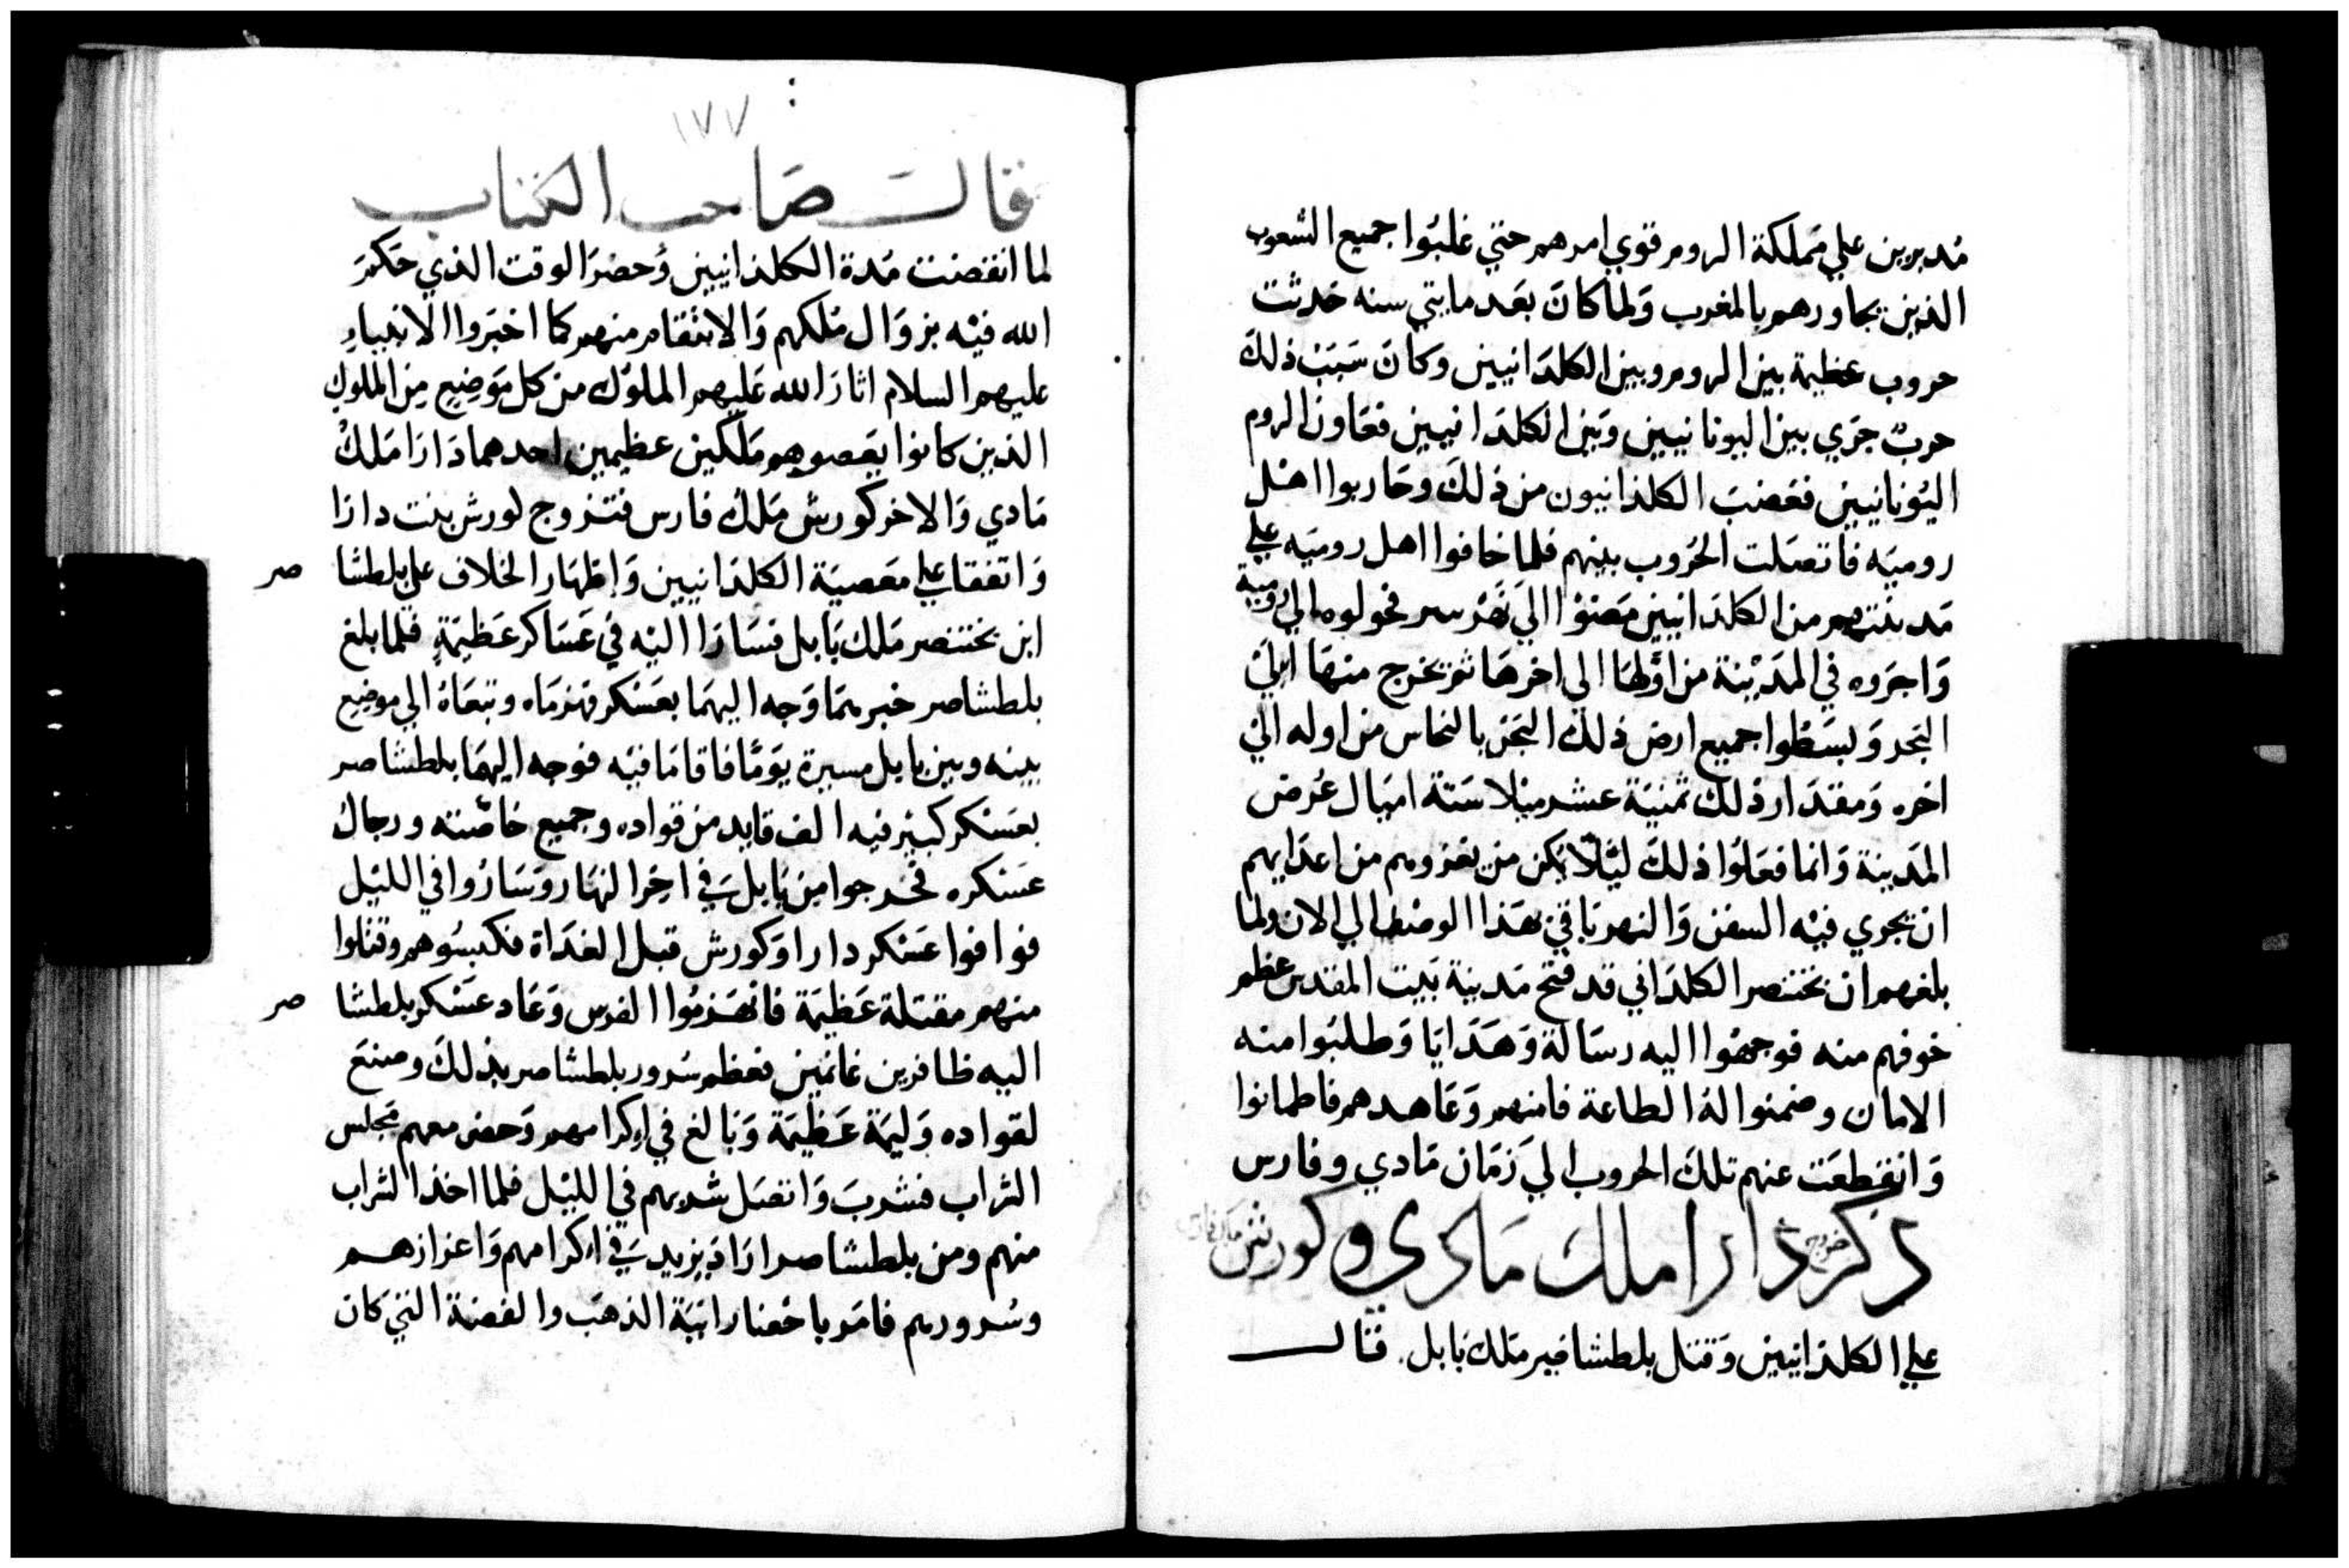 مدبرين علي مملكة الروم وقوي امرهم حتي غلبوا جميع الشعوب
الذين يجاورهم بالمغرب ولما كان بعد مايتي سنه حدثت
حروب عظيمة بين الروم وبين الكلدانيين وكان سبب ذلك
حرب جري بين اليونانيين وبين الكلدانيين فعاون الروم
اليونانيين فغضب الكلدانيون من ذلك وحاربوا اهل
روميه فاتصلت الحروب بينهم فلما خافوا اهل روميه علي
مدينتهم من الكلدانيين مضوا الي فحولوه الي رومية
واجروه في المدينة من اولها الي اخرها ثم يخرج منها الي
البحر وبسطوا جميع ارض ذلك بالنحاس من اوله الي
اخره ومقدار ذلك ثمنية عشر ميلا ستة اميال عرض
المدينة وانما فعلوا ذلك ليلا يمكن من يغزوهم من اعدايهم
ان تجري فيه السفن والنهر باقي بهذا الي الان ولما
بلغهم ان بختنصر الكلداني قد فتح مدينة بيت المقدس عظم
خوفهم منه فوجهوا اليه رسالة وهدايا وطلبوا منه
الامان وضمنوا له الطاعة فامنهم وعاهدهم فاطمانوا
وانقطعت عنهم تلك الحروب الي زمان مادي وفارس
ذكر خروج دارا ملك مادي وكورش ملك فارس
علي الكلدانيين وقتل بلطشاصر ملك بابل. قال
١٧٧
قال صاحب الكتاب
لما انقضت مدة الكلدانيين وحضر الوقت الذي حكم
الله فيه بزوال ملكهم والانتقام منهم كما اخبروا الانبياء
عليهم السلام اثار الله عليهم الملوك من كل موضع من الملوك
الذين كانوا بعصوهم ملكين عظيمين احدهما دارا ملك
مادي والاخر كورش ملك فارس فتزوج لورش بنت دارا
واتفقا علي معصية الكلدانيين واظهار الخلاف علي بلطشا صر
ابن بختنصر ملك بابل فسارا اليه في عساكر عظيمة فلما بلغ
بلطشاصر خبرهما وجه اليهما بعسكر فهزماه وتبعاه الي موضع
بينه وبين بابل مسيرة يوما فاقاما فيه فوجه اليهما بلطشاصر
بعسكر كبير فيه الف قايد من قواده وجميع خاصته ورجال
عسكره فخرجوا من بابل في اخر النهار وساروا في الليل
فوافوا عسكر دارا وكورش قبل الغداة فكبسوهم وقتلوا
منهم مقتلة عظيمة فانهزموا الفرس وعاد عسكر بلطشا صر
اليه ظافرين غانمين فعظم سرور بلطشاصر بذلك وصنع
لقواده وليمة عظيمة وبالغ في اكرامهم وحضر معهم مجلس
الشراب فشرب واتصل شربهم في الليل فلما اخذ الشراب
منهم ومن بلطشاصر اراد يزيد في اكرامهم واعزازهم
وسرورهم فامر باحضار انية الذهب والفضة التي كان